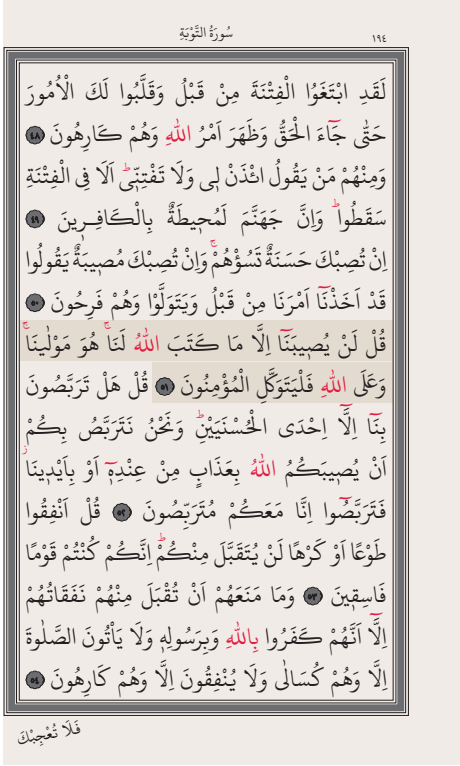 سُورَةُ التَّوْبَةِ ١٩٤
لَقَدِ ابْتَغَوُا الْفِتْنَةَ مِنْ قَبْلُ وَقَلَّبُوا لَكَ الْاُمُورَ
حَتّٰى جَٓاءَ الْحَقُّ وَظَهَرَ اَمْرُ اللّٰهِ وَهُمْ كَارِهُونَ ٤٨
وَمِنْهُمْ مَنْ يَقُولُ ائْذَنْ لِى وَلَا تَفْتِنّٖىۜ اَلَا فِى الْفِتْنَةِ
سَقَطُواۜ وَاِنَّ جَهَنَّمَ لَمُحٖيطَةٌ بِالْكَافِرٖينَ ٤٩
اِنْ تُصِبْكَ حَسَنَةٌ تَسُؤْهُمْۚ وَاِنْ تُصِبْكَ مُصٖيبَةٌ يَقُولُوا
قَدْ اَخَذْنَٓا اَمْرَنَا مِنْ قَبْلُ وَيَتَوَلَّوْا وَهُمْ فَرِحُونَ ٥٠
قُلْ لَنْ يُصٖيبَنَٓا اِلَّا مَا كَتَبَ اللّٰهُ لَنَاۚ هُوَ مَوْلٰينَاۚ
وَعَلَى اللّٰهِ فَلْيَتَوَكَّلِ الْمُؤْمِنُونَ ٥١ قُلْ هَلْ تَرَبَّصُونَ
بِنَٓا اِلَّٓا اِحْدَى الْحُسْنَيَيْنِۜ وَنَحْنُ نَتَرَبَّصُ بِكُمْ
اَنْ يُصٖيبَكُمُ اللّٰهُ بِعَذَابٍ مِنْ عِنْدِهٖٓ اَوْ بِاَيْدٖينَاۘ
فَتَرَبَّصُٓوا اِنَّا مَعَكُمْ مُتَرَبِّصُونَ ٥٢ قُلْ اَنْفِقُوا
طَوْعًا اَوْ كَرْهًا لَنْ يُتَقَبَّلَ مِنْكُمْۜ اِنَّكُمْ كُنْتُمْ قَوْمًا
فَاسِقٖينَ ٥٣ وَمَا مَنَعَهُمْ اَنْ تُقْبَلَ مِنْهُمْ نَفَقَاتُهُمْ
اِلَّٓا اَنَّهُمْ كَفَرُوا بِاللّٰهِ وَبِرَسُولِهٖ وَلَا يَاْتُونَ الصَّلٰوةَ
اِلَّا وَهُمْ كُسَالٰى وَلَا يُنْفِقُونَ اِلَّا وَهُمْ كَارِهُونَ ٥٤
فَلَا تُعْجِبْكَ